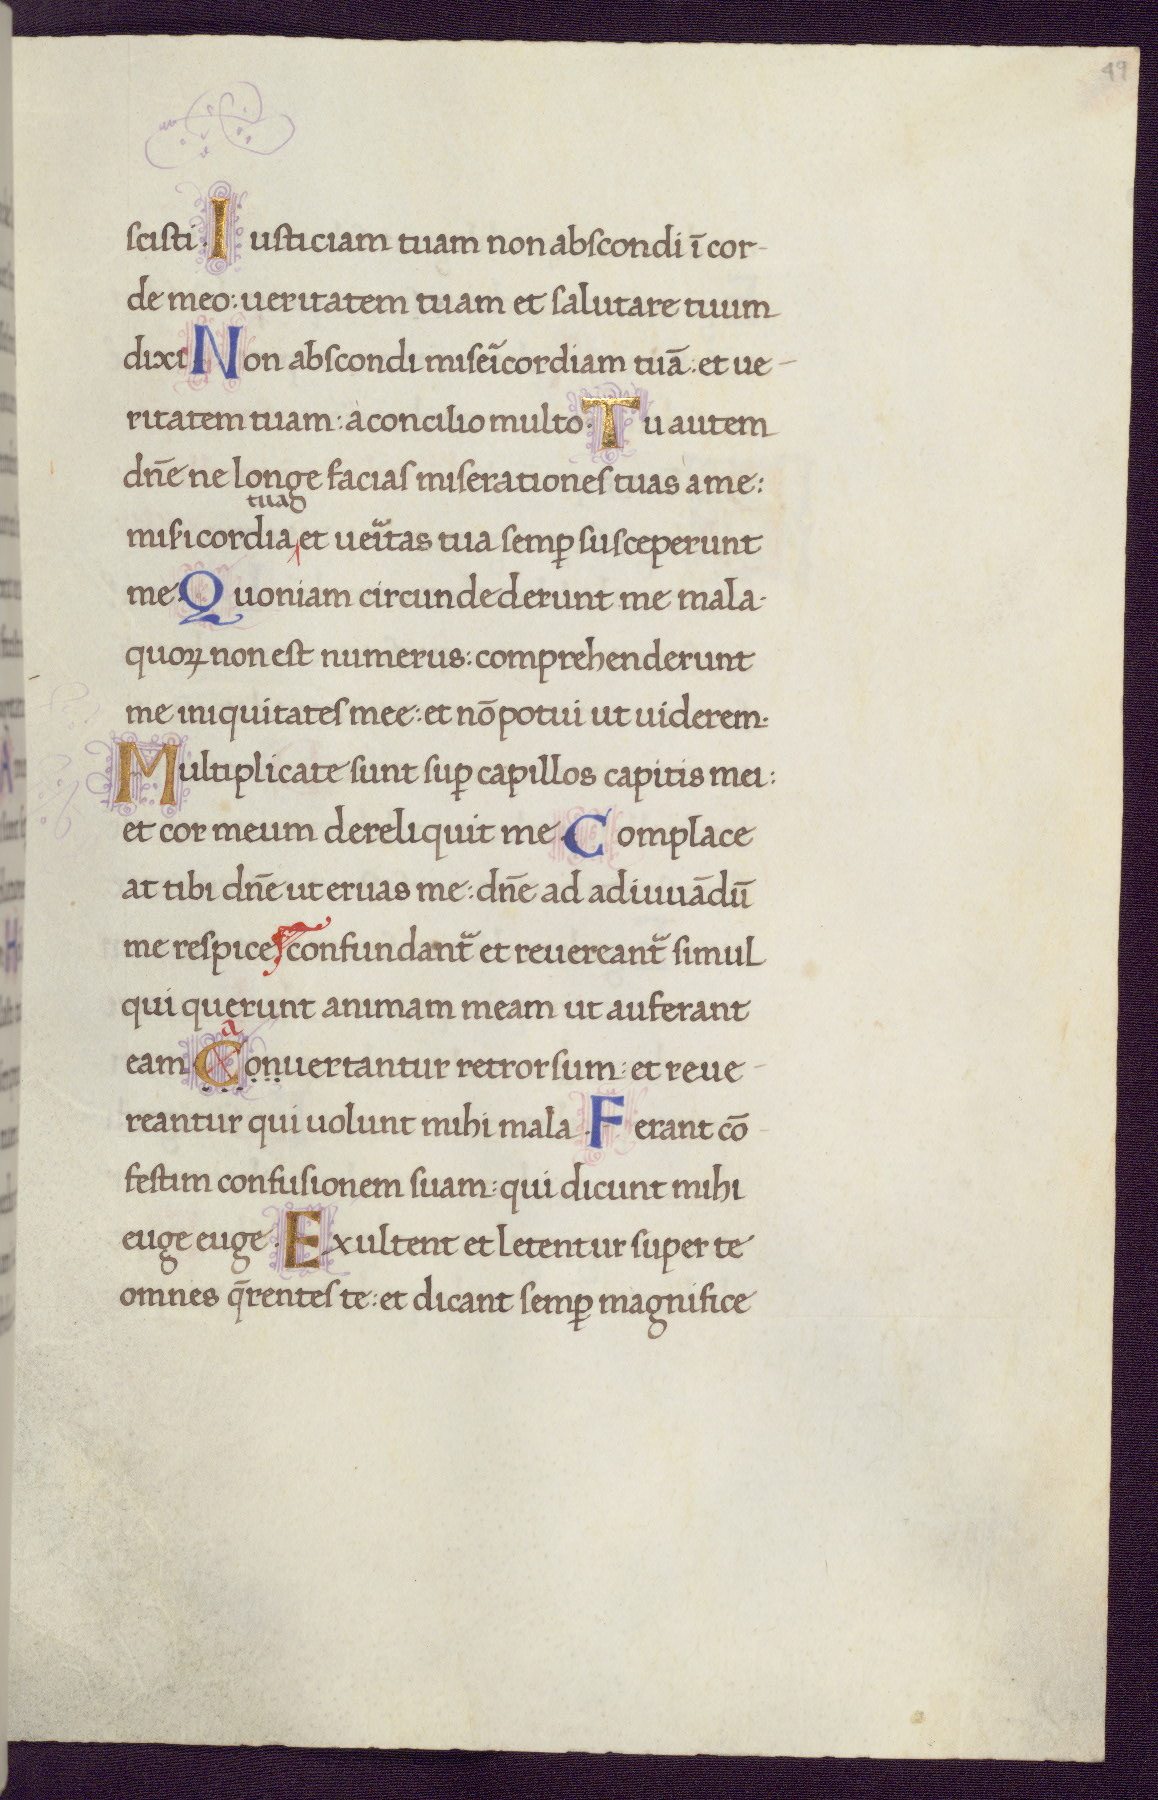 49
scisti. Iusticiam tuam non abscondi ī cor-
de meo: ueritatem tuam et salutare tuum
dixi Non abscondi miseicordiam tuā: et ue-
ritatem tuam: a concilio multo. Tu autem
dn̄e ne longe facias miserationes tuas a me:
tua
misicordia et ueitas tua semꝑ susceperunt
me. Quoniam circundederunt me mala.
quoꝝ non est numerus: comprehenderunt
me iniquitates mee: et nō potui ut uiderem.
Multiplicate sunt suꝑ capillos capitis mei:
et cor meum dereliquit me. Complace
at tibi dn̄e ut eruas me: dn̄e ad adiuuādū
me respice confundant᷑ et reuereant᷑ simul
qui querunt animam meam ut auferant
a
eam Conuertantur retrorsum: et reue-
reantur qui uolunt mihi mala. Ferant cō-
festim confusionem suam: qui dicunt mihi
euge euge. Exultent et letentur super te
omnes q̄rentes te: et dicant semꝑ magnifice